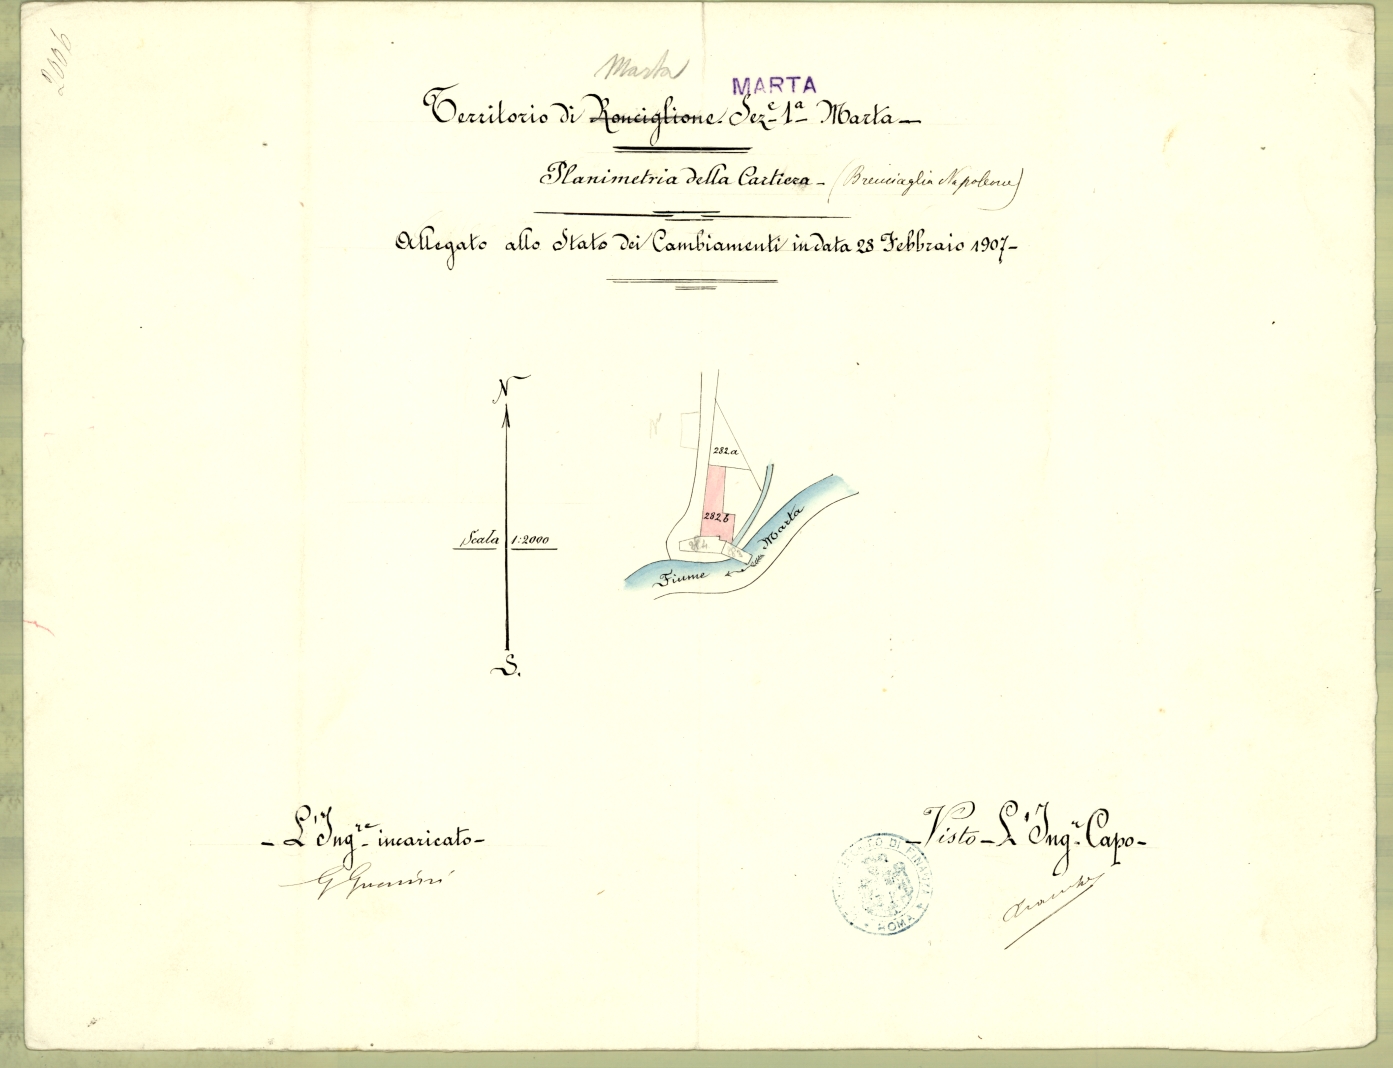 2006
Marta
MARTA
Territorio di Ronciglione. Sez.e 1a Marta
Planimetria della Cartiera - (Brenciaglia Napoleone)
Allegato allo Stato dei Cambiamenti in data 28 Febbraio 1907-
N
N
282.a
282.b
Scala 1:2000
Marta
Fiume
S.
- L'Ing.re incaricato -
- Visto - L'Ing.re Capo -
DI FINANZA
ROMA